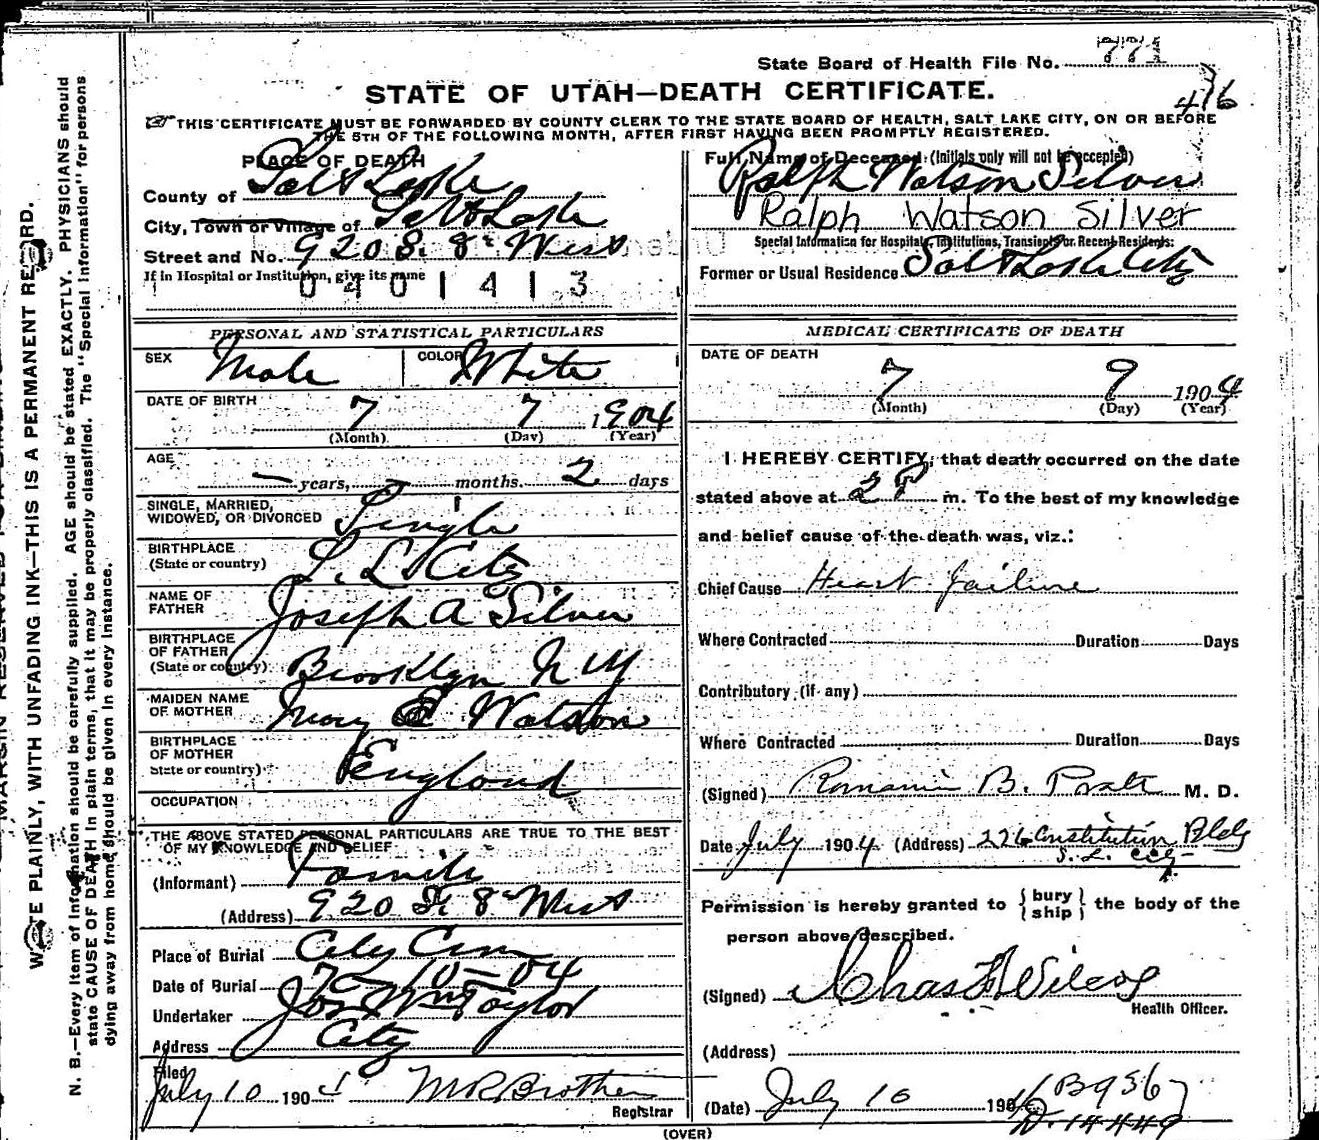 State Board of Health File No. 771
STATE OF UTAH—DEATH CERTIFICATE.
476
☞THIS CERTIFICATE MUST BE FORWARDED BY COUNTY CLERK TO THE STATE BOARD OF HEALTH, SALT LAKE CITY, ON OR BEFORE
THE 5TH OF THE FOLLOWING MONTH, AFTER FIRST HAVING BEEN PROMPTLY REGISTERED.
PLACE OF DEATH
County of Salt Lake
City, Town or Village of Salt Lake
Street and No. 920 S. 8th West
If in Hospital or Institution, give its name
040 1413
Full Name of Deceased: (Initials only will not be accepted)
Ralph Watson Silver
Ralph Watson Silver
Special Information for Hospitals, Institutions, Transients or Recent Residents:
Former or Usual Residence Salt Lake City
PERSONAL AND STATISTICAL PARTICULARS
SEX Male COLOR White
DATE OF BIRTH
7 7 1904
(Month) (Day) (Year)
AGE
— years, — months. 2 days
SINGLE, MARRIED,
WIDOWED, OR DIVORCED Single
BIRTHPLACE
(State or country) S. L. City
NAME OF
FATHER Joseph A Silver
BIRTHPLACE
OF FATHER
(State or country) Brooklyn N Y
MAIDEN NAME
OF MOTHER Mary E Watson
BIRTHPLACE
OF MOTHER
State or country) England
OCCUPATION
THE ABOVE STATED PERSONAL PARTICULARS ARE TRUE TO THE BEST
OF MY KNOWLEDGE AND BELIEF
(Informant) Family
(Address) 920 S. 8th West
Place of Burial City Cem
Date of Burial 7-10-04
Undertaker Jos Wm Taylor
Address City
Filed
July 10 1904 M R Brothen
Registrar
MEDICAL CERTIFICATE OF DEATH
DATE OF DEATH
7 9 1904
(Month) (Day) (Year)
I HEREBY CERTIFY, that death occurred on the date
stated above at 2 P m. To the best of my knowledge
and belief cause of the death was, viz.:
Chief Cause Heart Failure
Where Contracted Duration Days
Contributory (if any)
Where Contracted Duration Days
(Signed) Romania B. Pratt M. D.
Date July 1904 (Address) 226 Constitution Bldg
S. L. City
Permission is hereby granted to { bury
ship } the body of the
person above described.
(Signed) Chas F Wilcox
Health Officer.
(Address)
(Date) July 10 1904 B 9567
D. 14449
(OVER)
WRITE PLAINLY, WITH UNFADING INK—THIS IS A PERMANENT RECORD.
N. B.—Every item of information should be carefully supplied. AGE should be stated EXACTLY. PHYSICIANS should
state CAUSE OF DEATH in plain terms, that it may be properly classified. The "Special Information" for persons
dying away from home should be given in every instance.